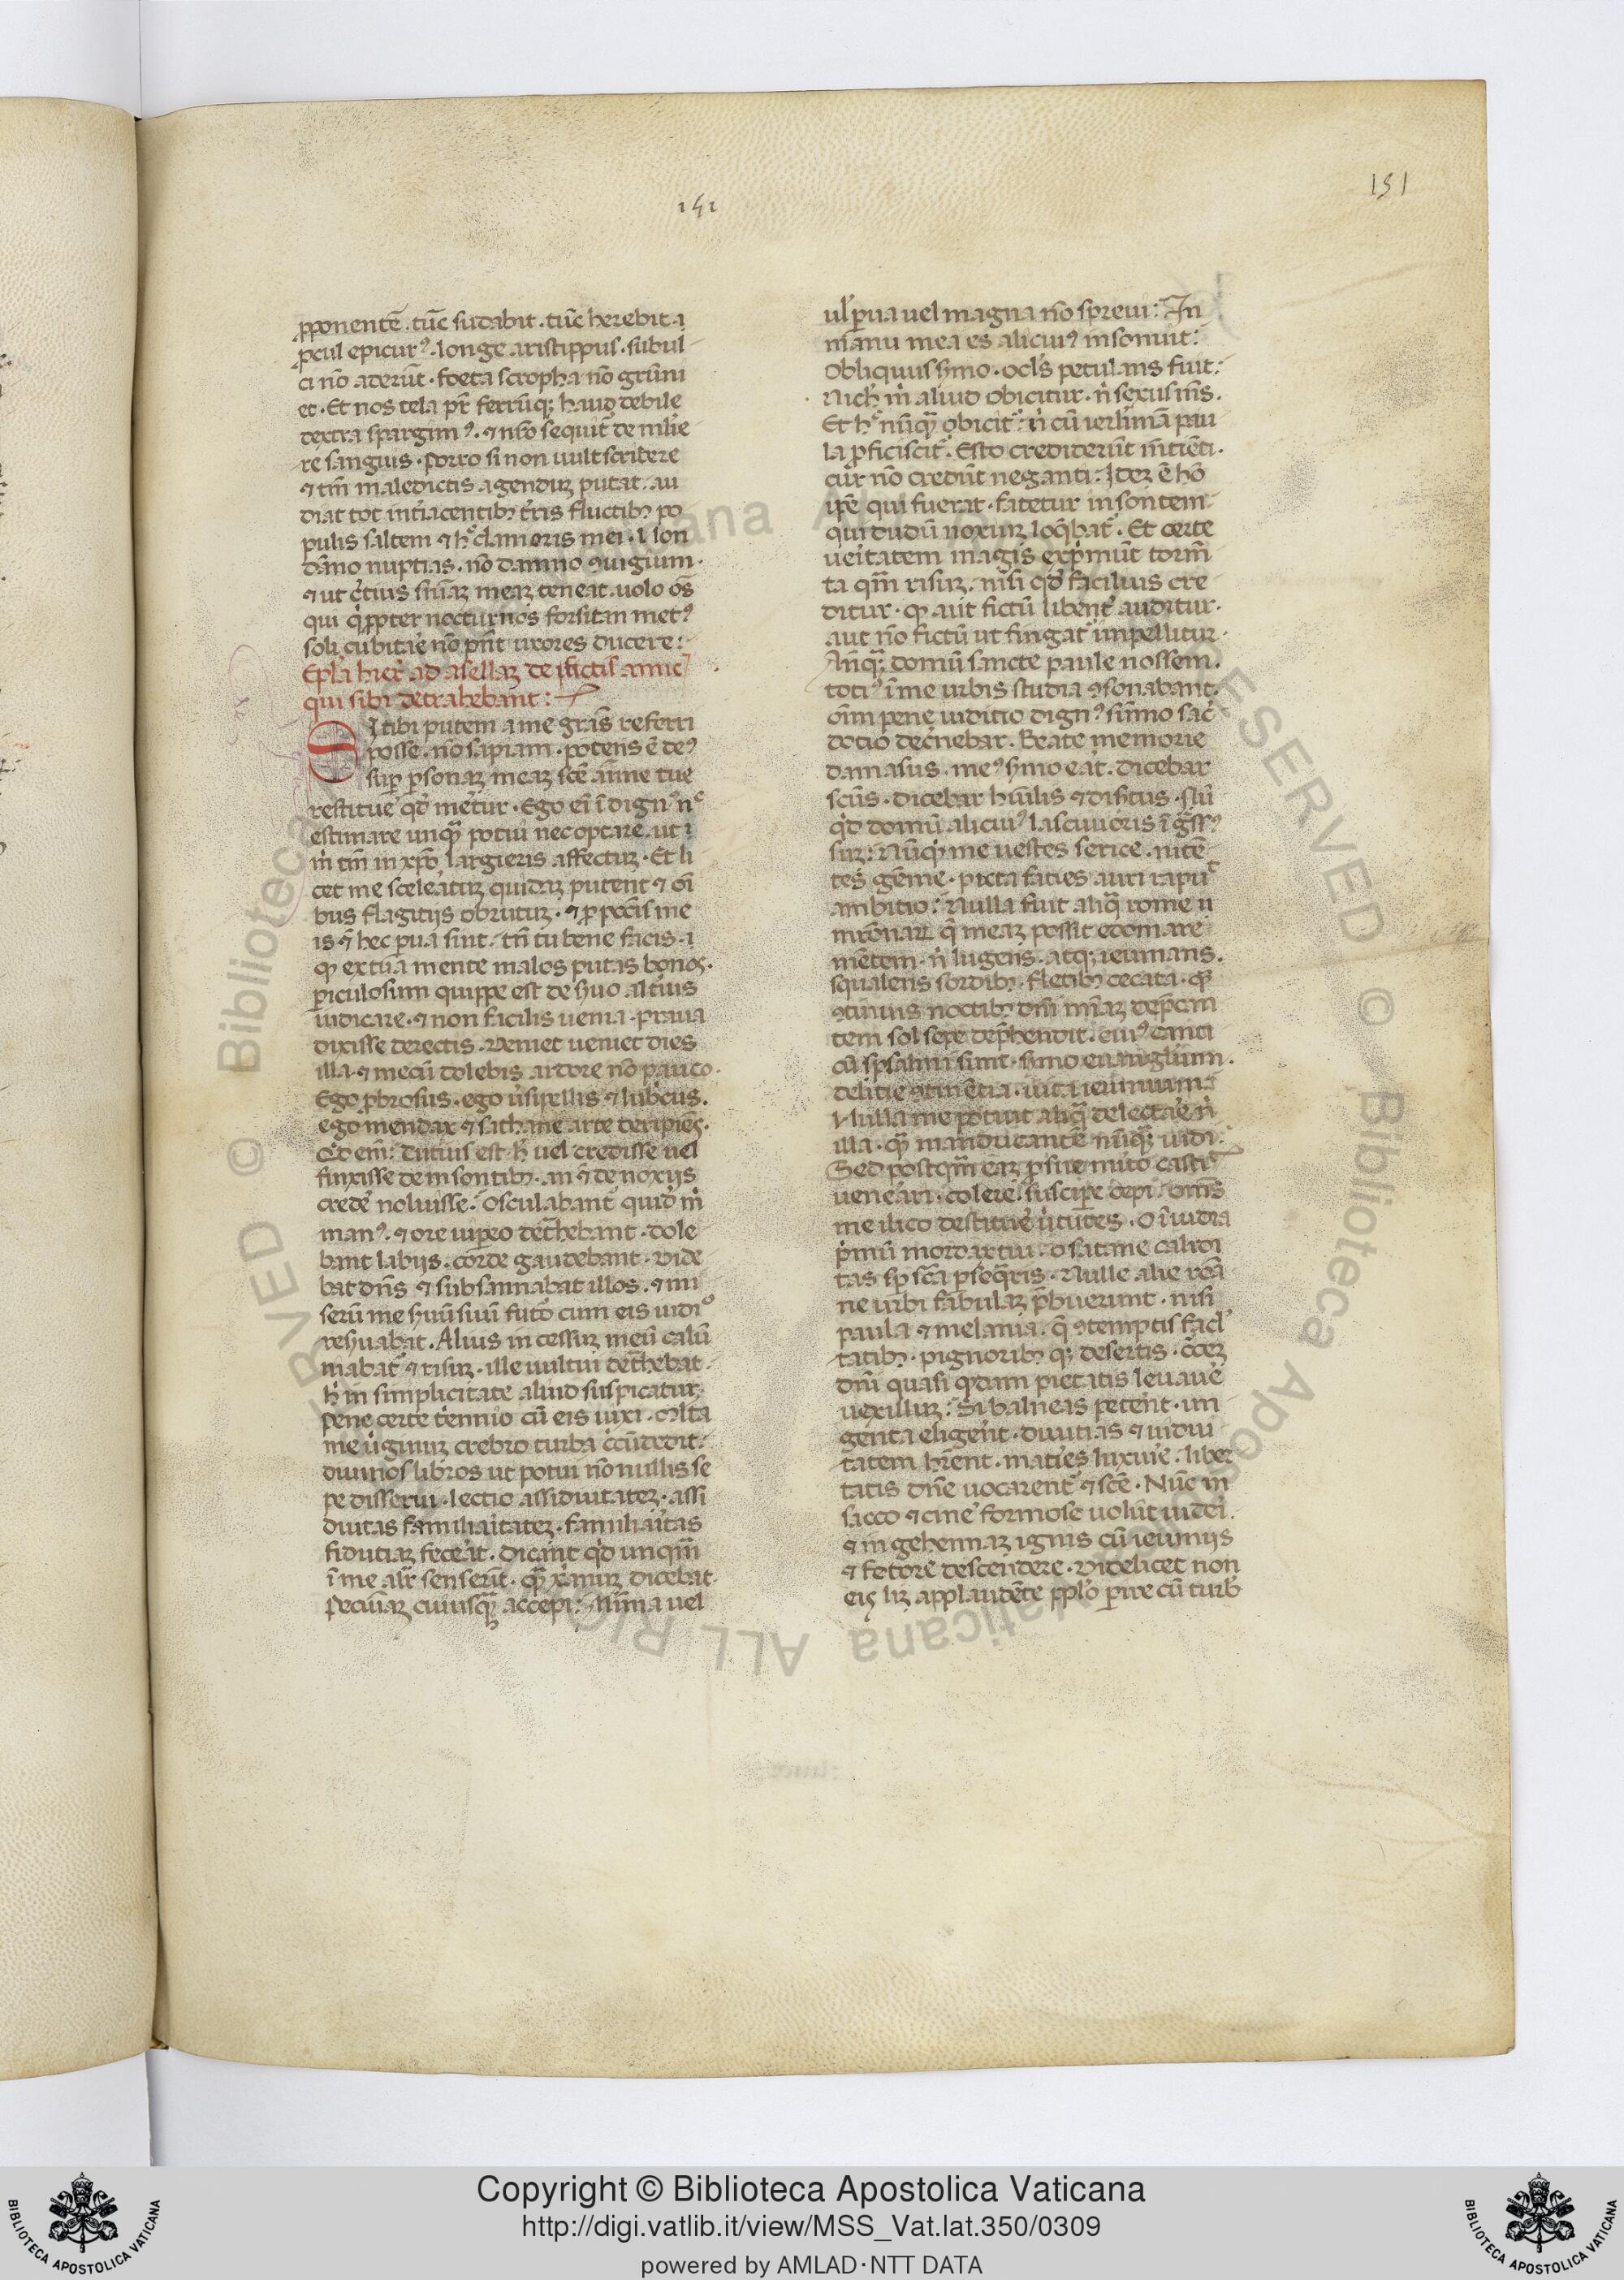 151
151
ꝓponentē. tūc sudabit. tūc herebit. ⁊
ꝓcul epicurꝰ. longe aristippus. subul
ci nō aderūt. foeta scropha nō grūni
et. Et nos tela pr̄ ferrūq; haud debile
dextra spargimꝰ. ⁊ nr̄o sequit᷑ de uulne
re sanguis. Porro si non uult scribere
⁊ tm̄ maledictis agenduꝫ putat. au
diat tot int̄iacentibꝫ t̄ris fluctibꝫ po
pulis saltem ⁊ hͦ clamoris mei. Non
dāno nuptias. nō damno ꝯiugium.
⁊ ut c̄tius sn̄iaꝫ meaꝫ teneat. uolo oēs
qui ꝓpter nocturnos forsitan metꝰ
soli cubitare nō pn̄t uxores ducere:
Epl̄a hier̄ ad asellaꝫ de fictis amic̄
qui sibi detrahebant:
Si tibi putem a me gr̄as referri
posse. nō sapiam. potens ē deꝰ
suꝑ ꝑsonaꝫ meaꝫ sc̄e aīme tue
restitue᷑ qd̓ meretur. Ego eī īdignꝰ nͨ
estimare unqͣꝫ potui nec optare. ut
m̄ tm̄ in xp̄o largieris affectuꝫ. Et li
cet me sceleratuꝫ quidaꝫ putent ⁊ oī
bus flagitijs obrutuꝫ. ⁊ ꝓ pcc̄is me
is ⁊ hec ꝑua sint. tn̄ tu bene facis.
ꝙ ex tua mente malos putas bonos.
ꝑiculosum quippe est de ẜuo alt̄ius
iudicare. ⁊ non facilis uenia. praua
dixisse de rectis. Ueniet ueniet dies
illa ⁊ mecū dolebis ardere nō pauco.
Ego ꝓbrosus. ego ūsipellis ⁊ lubricus.
ego mendax ⁊ sathane arte decipiēs.
Qd̓ enī: tutius est h̄ uel credisse uel
finxisse de insontibꝫ. an ⁊ de noxijs
crede᷑ noluisse. Osculabant᷑ quidā m̄
manꝰ. ⁊ ore uiꝑeo det̄hebant. dole
bant labijs. corde gaudebant. Uide
bat dn̄s ⁊ subsannabat illos. ⁊ mi
serū me ẜuū suū futͦ cum eis iudiͦ
reẜuabat. Alius incessuꝫ meū calū
niabat᷑ ⁊ risuꝫ. ille uultui det̄hebat.
h̄ in simplicitate aliud suspicatur.
Pene certe t̄ennio cū eis uixi. Mlta
me ūginuꝫ crebro turba c̄cūdedit.
diuinos libros ut potui nōnullis se
pe disserui. lectio assiduitateꝫ. assi
duitas familiaritateꝫ. familiaritas
fidutiaꝫ fecerat. Dicant qd̓ unqͣm
ī me alr̄ senserūt. qͣꝫ xp̄ianuꝫ dicebat.
Pecuniaꝫ cuiusqͣꝫ accepi: Munera uel
ul̓ ꝑua uel magna nō spreui: In
manu mea es alicuiꝰ insonuit:
Obliquus ẜmo. ocl̓s petulans fuit:
Nich̓ m̄ aliud obicitur. n̄ sexus m̄s.
Et hͦ nūqͣꝫ obicit᷑: n̄ cū ierl̓imā pau
la ꝓficiscit᷑. Esto crediderūt mētiēti.
cur nō credūt neganti: Ideꝫ ē hō
ip̄e qui fuerat. fatetur insontem
qui dudū noxiuꝫ loqͣbat᷑. Et certe
ueritatem magis exprimūt torm̄
ta qͣm risuꝫ. nisi qd̓ facilius cre
ditur. ꝙ aut fictū libent̄ auditur.
aut nō fictū ut fingat᷑ impellitur.
Anq̄ꝫ domū sancte paule nossem.
totiꝰ ī me urbis studia ꝯsonabant.
oīm pene iuditio dignꝰ sūmo sac̄
dotio dec̄nebar. Beate memorie
damasus. meꝰ ẜmo erat. dicebar
scūs. dicebar humilis ⁊ disertus. Nū
qͥd domū alicuiꝰ lasciuioris īgressꝰ
suꝫ: Nūqͥd me uestes serice. nite
tes gēme. picta facies auri rapuͨ
ambitio: Nulla fuit aliq̄ rome
mr̄onaꝝ q̄ meaꝫ possit edomare
mētem. n̄ lugens. atq; ieiunans.
squalens sordibꝫ. fletibꝫ cecata. qͣꝫ
ꝯtinuis noctibꝫ dn̄i mīaꝫ dep̄can
tem sol sepe dep̄hendit. cuiꝰ canti
cū psalmi sunt. ẜmo euangelium.
delitie ꝯtinētia. uita ieiunium.
Nulla me potuit aliq̄ delectare n̄
illa. qͣꝫ manducantē nūqͣꝫ uidi.
Sed postqͣm eaꝫ ꝓ sue merito castiͭ
uenerari. colere. suscipe cepi. omēs
me ilico destitue᷑ ūtutes. O īuidia
pͥmū mordax tui. o satane calidi
tas sp̄ sc̄a ꝑseq̄ris. Nulle alie roā
ne urbi fabulaꝫ p̄buerunt. nisi
paula ⁊ melania. q̄ ꝯtemptis facl̓
tatibꝫ. pignoribꝫ q; desertis. c̄ceꝫ
dn̄i quasi qͦdam pietatis leuauē
uexilluꝫ: Si balneas petent. un
genta eligerēt. diuitias ⁊ uidui
tatem hr̄ent. maties luxurie. liber
tatis dn̄e uocarent᷑ ⁊ sc̄e. Nūc in
sacco ⁊ cine᷑ formose uolūt uideri.
⁊ in gehennaꝫ ignis cū ieiunijs
⁊ fetore descendere. Uidelicet non
eis liꝫ applaudēte pplo ꝑire cū turb̓